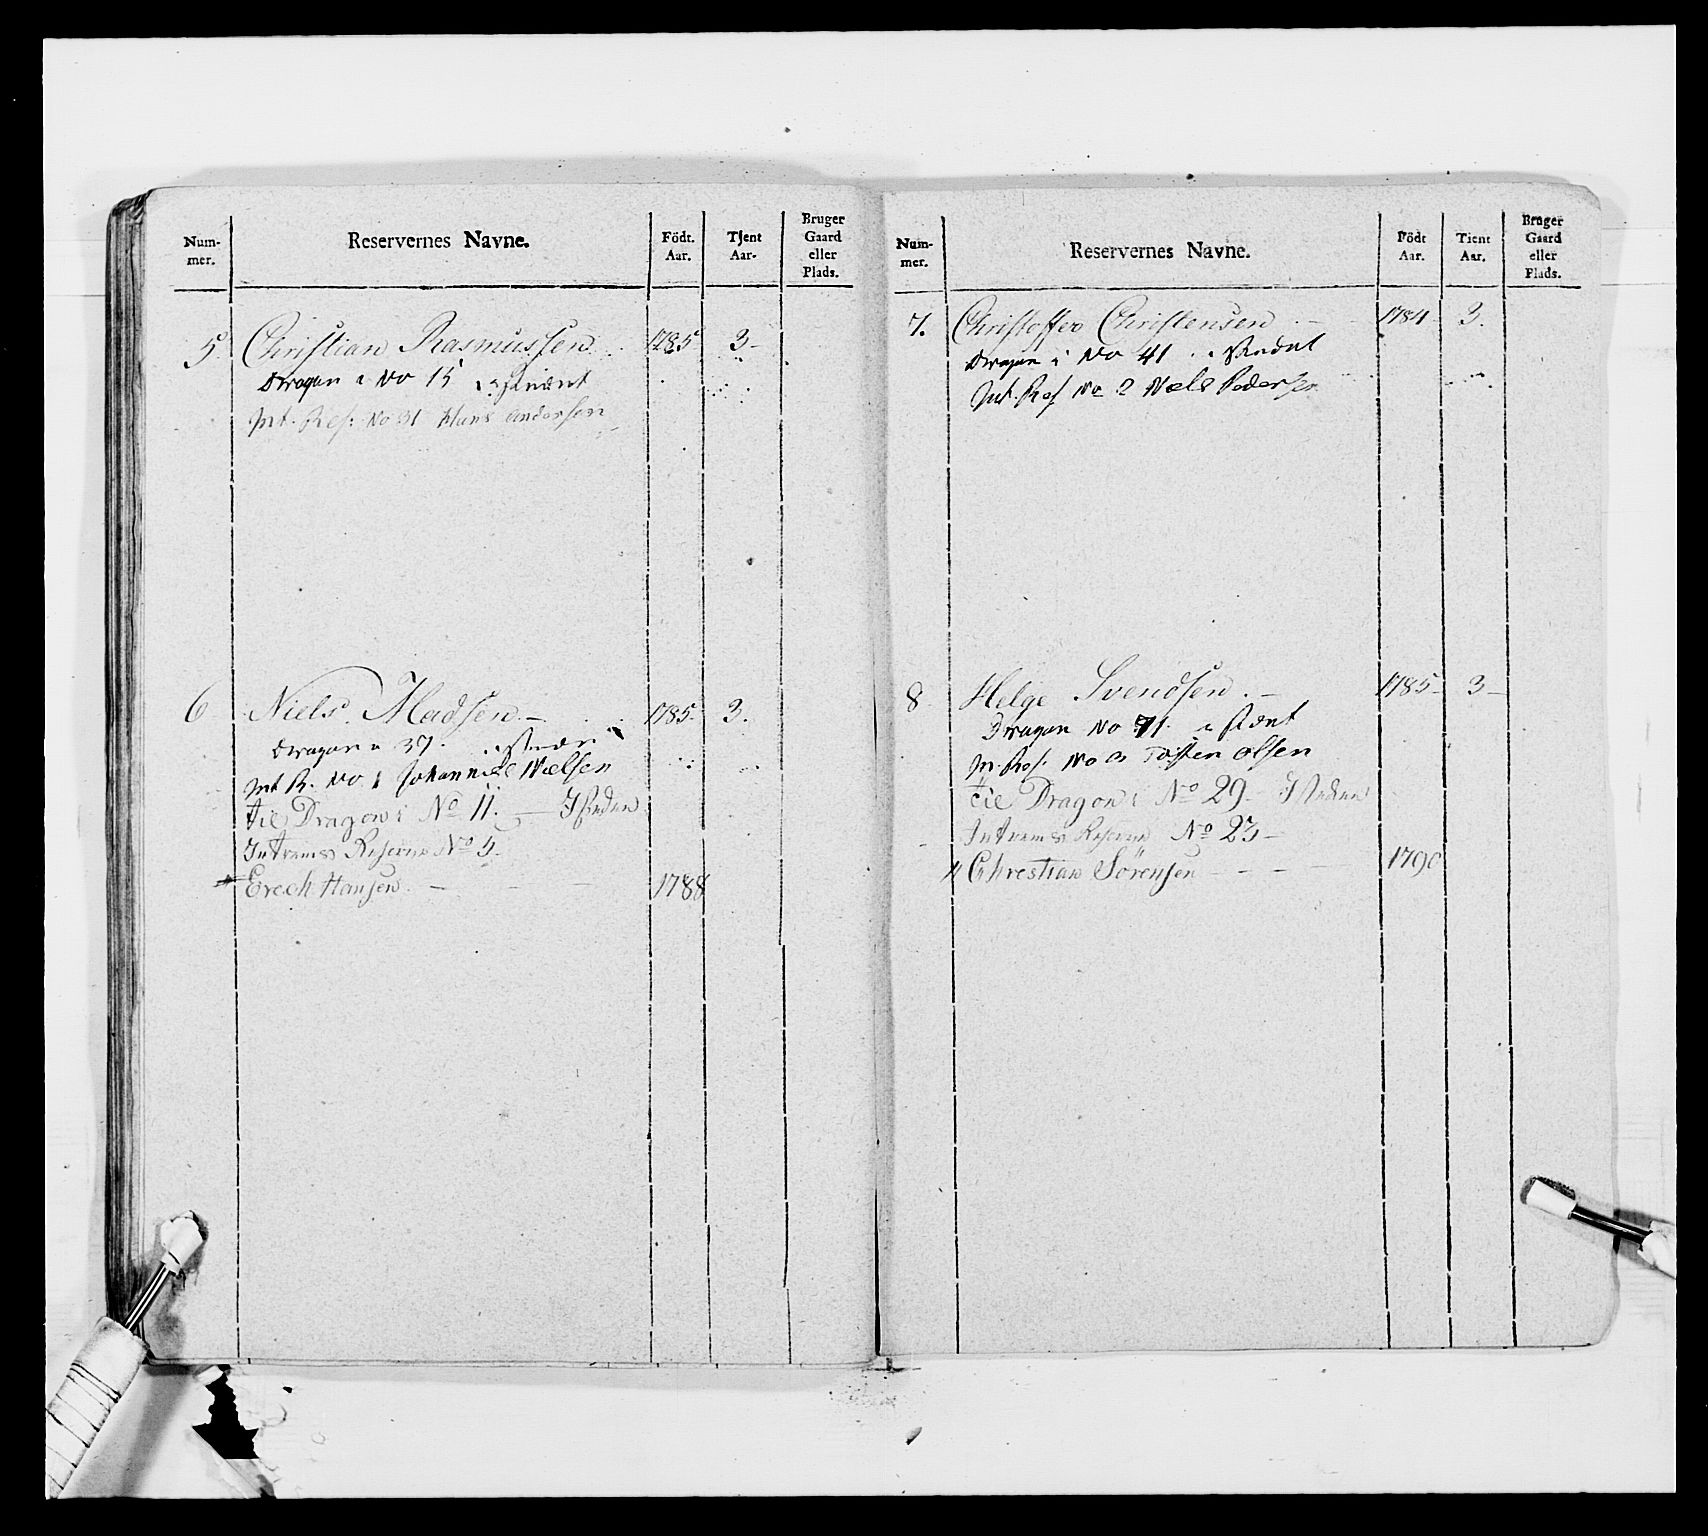 Num-
mer.
Reservernes Navne.
Födt.
Aar.
Tjent
Aar.
Bruger
Gaard
eller
Plads.
5 Christian Rasmussen 1785 3-
Dragon No 15
Int. Res: No 31 Hans Andersen
6 Niels Madsen. - 1785- 3.
Dragon 37.
Int R. No 1 Johannes Nielsen
til Dragon No 11. - Isteden
Interims Reserve No 5
Erech Hansen. - 1788
Num-
mer.
Reservernes Navne.
Födt
Aar.
Tient
Aar.
Bruger
Gaard
eller
Plads.
7. Christoffer Christensen 1784 3.
Dragon No 41
Int. Res No 2 Niels Pedersen
8 Helge Svendsen. - 1785- 3-
Dragon No 71.
Res. No 3 Tosten Olsen
til Dragon No 29- Isteden
Interims Reserve No 23-
Chrestian Sörensen - - - 1790